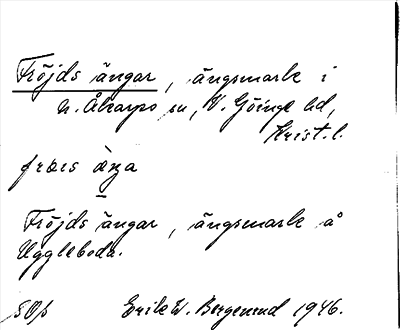 Fröjds ängar, ängsmark i
n. Åkarps sn, V. Göinge hd,
Krist. l.
frœs ænga
Fröjds ängar, ängsmark å
Uggleboda.
Erik W. Bergenud 1946.